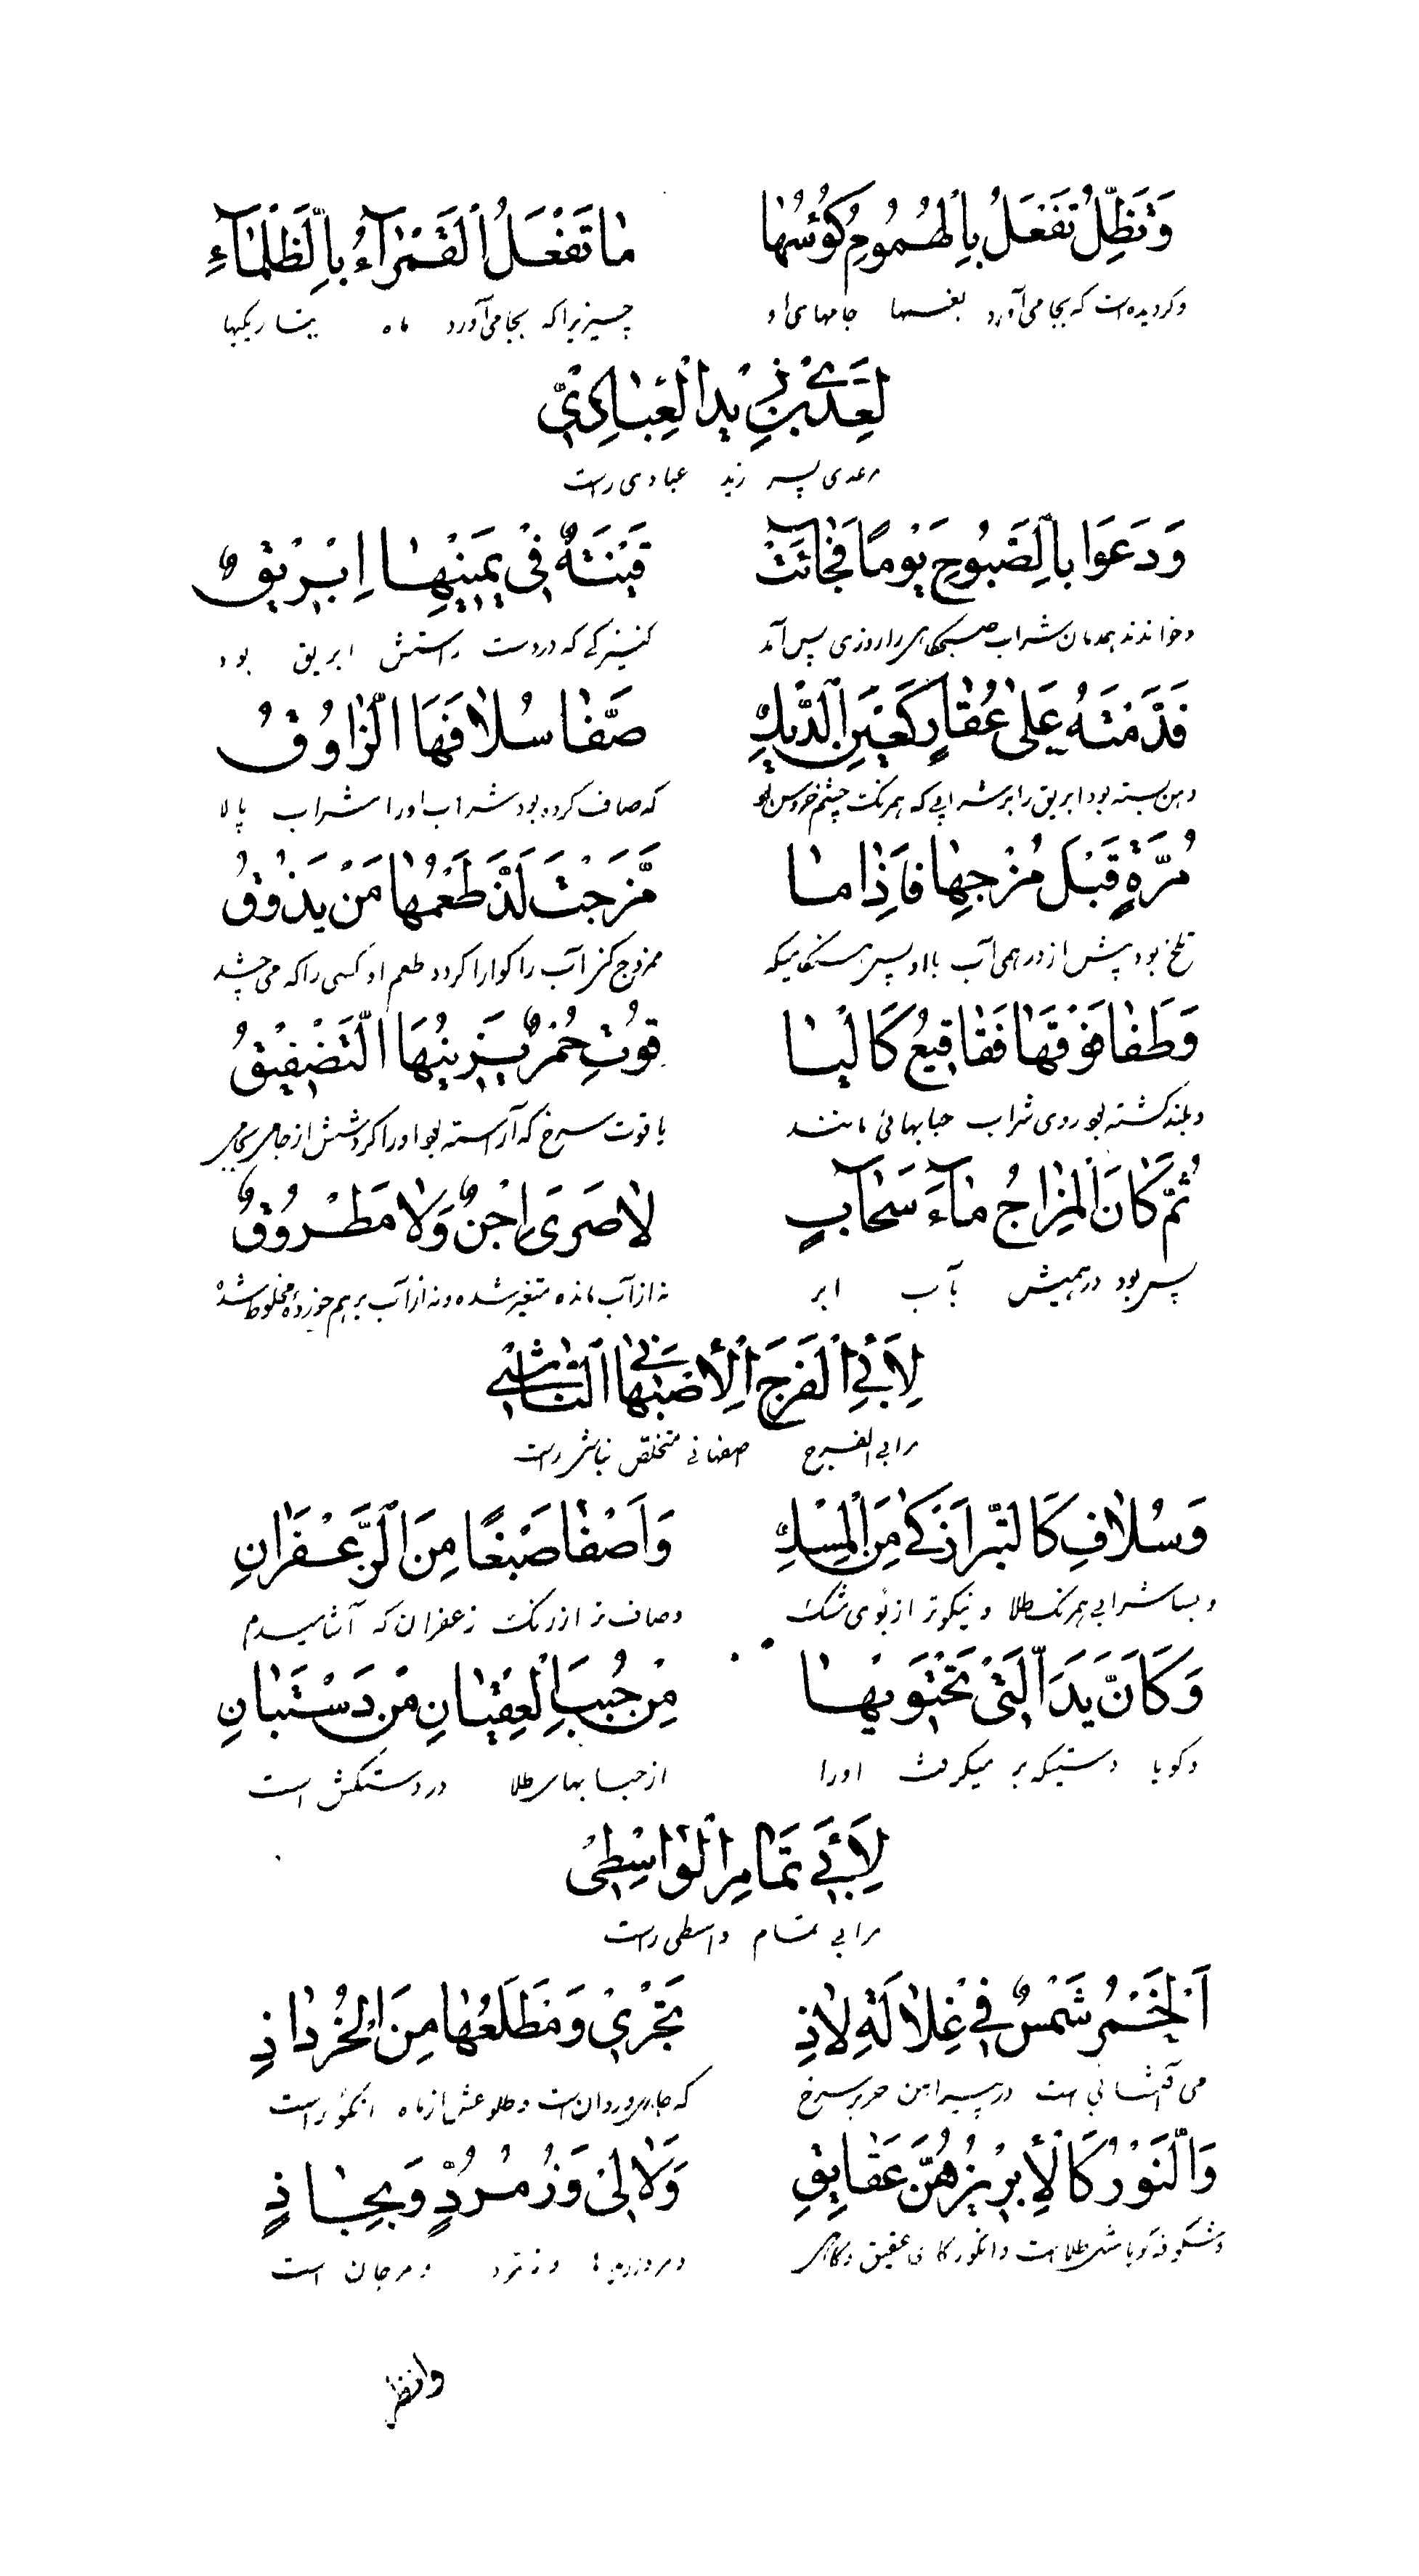 وَتَظِلُّ تَفْعَلُ بِالْهُمُومِ كُؤُسُهَا مَا تَفْعَلُ الْقَمْرَآءُ بِالظَّلْمَآءِ
و کردیده است که بجا می‌آورد بغمها جامهای او چیزیرا که بجا می‌آورد ماه بتاریکیها
لِعَدِيِّ بْنِ زَيْدِ الْعِبَادِيِّ
مر عدی پسر زید عبادی راست
وَدَعَوْا بِالصَّبُوحِ يَوْمًا فَجَائَتْ قَيْنَةٌ فِي يَمِينِهَا إِبْرِيقٌ
و خواندند همدمان شراب صبحکاهی را روزی پس آمد کنیزکی که در دست راستش ابریق بود
قَدَّمَتْهُ عَلَى عُقَارٍ كَعَيْنِ الدِّيكِ صَفَّا سُلَافَهَا الرَّاوُقُ
دهن بسته بود ابریق را بر شرابی که همرنک چشم خروس که صاف کرده بود شراب او را شراب پالا
مُرَّةٍ قَبْلَ مَزْجِهَا فَإِذَا مَا مُزِجَتْ لَذَّ طَعْمُهَا مَنْ يَذُوقُ
تلخ بود پیش از درهمی آب با او پس هنکامیکه ممزوج کنر آب را کوارا کردد طعم او کسی را که می چشد
وَطَفَا فَوْقَهَا فَقَاقِيعُ كَالْيَا قُوتِ حُمْرٌ يَزِينُهَا التَّصْفِيقُ
و بلند کشته بر روی شراب حبابهائی مانند یاقوت سرخ که آراسته بود او را کردشش از جامی بجامی
ثُمَّ كَانَ الْمِزَاجُ مَآءَ سَحَابٍ لَا صَرَى آجِنٌ وَلَا مَطْرُوقٌ
پس بود درهمیش بآب ابر نه از آب مانده متغیر شده و نه از آب برهم خورده مخلوط شده
لِأَبِي الْفَرَجِ الْأَصْبَهَانِي النَّاشِي
مر ابی الفرج اصفهانی متخلص بناشی راست
وَسُلَافٍ كَالتِّبْرِ أَذْكَى مِنَ الْمِسْكِ وَأَصْفَا صَبْغًا مِنَ الزَّعْفَرَانِ
و بسا شرابی همرنک طلا و نیکوتر از بوی مشک و صاف تر از رنک زعفران که آشامیدم
وَكَأَنَّ يَدَ الَّتِي تَحْتَوِيهَا مِنْ حُبَبِ الْعِقْيَانِ مِنْ دَسْتَبَانِ
و کویا دستیکه بر میکرفت او را از حبابهای طلا در دستکش است
لِأَبِي تَمَامِ الْوَاسِطِيِّ
مر ابی تمام واسطی راست
اَلْخَمْرُ شَمْسٌ فِي غِلَالَةِ لَاذِ تَجْرِي وَمَطْلَعُهَا مِنَ الْخُرْدَاذِ
می آفتابی است در پیراهن حریر سرخ که جاری و روان است و طلوعش از ماه انکور است
وَالنَّوْرُ كَالْإِبْرِيزِ هُنَّ عَقَايِقِ وَلَالِي وَزُمُرُّدٍ وَبِجَاذِ
و شکوفه کویا طلا است و انکور کاهی عقیق و کاهی و مرواریدها و زمرد و مرجان است
وانظر